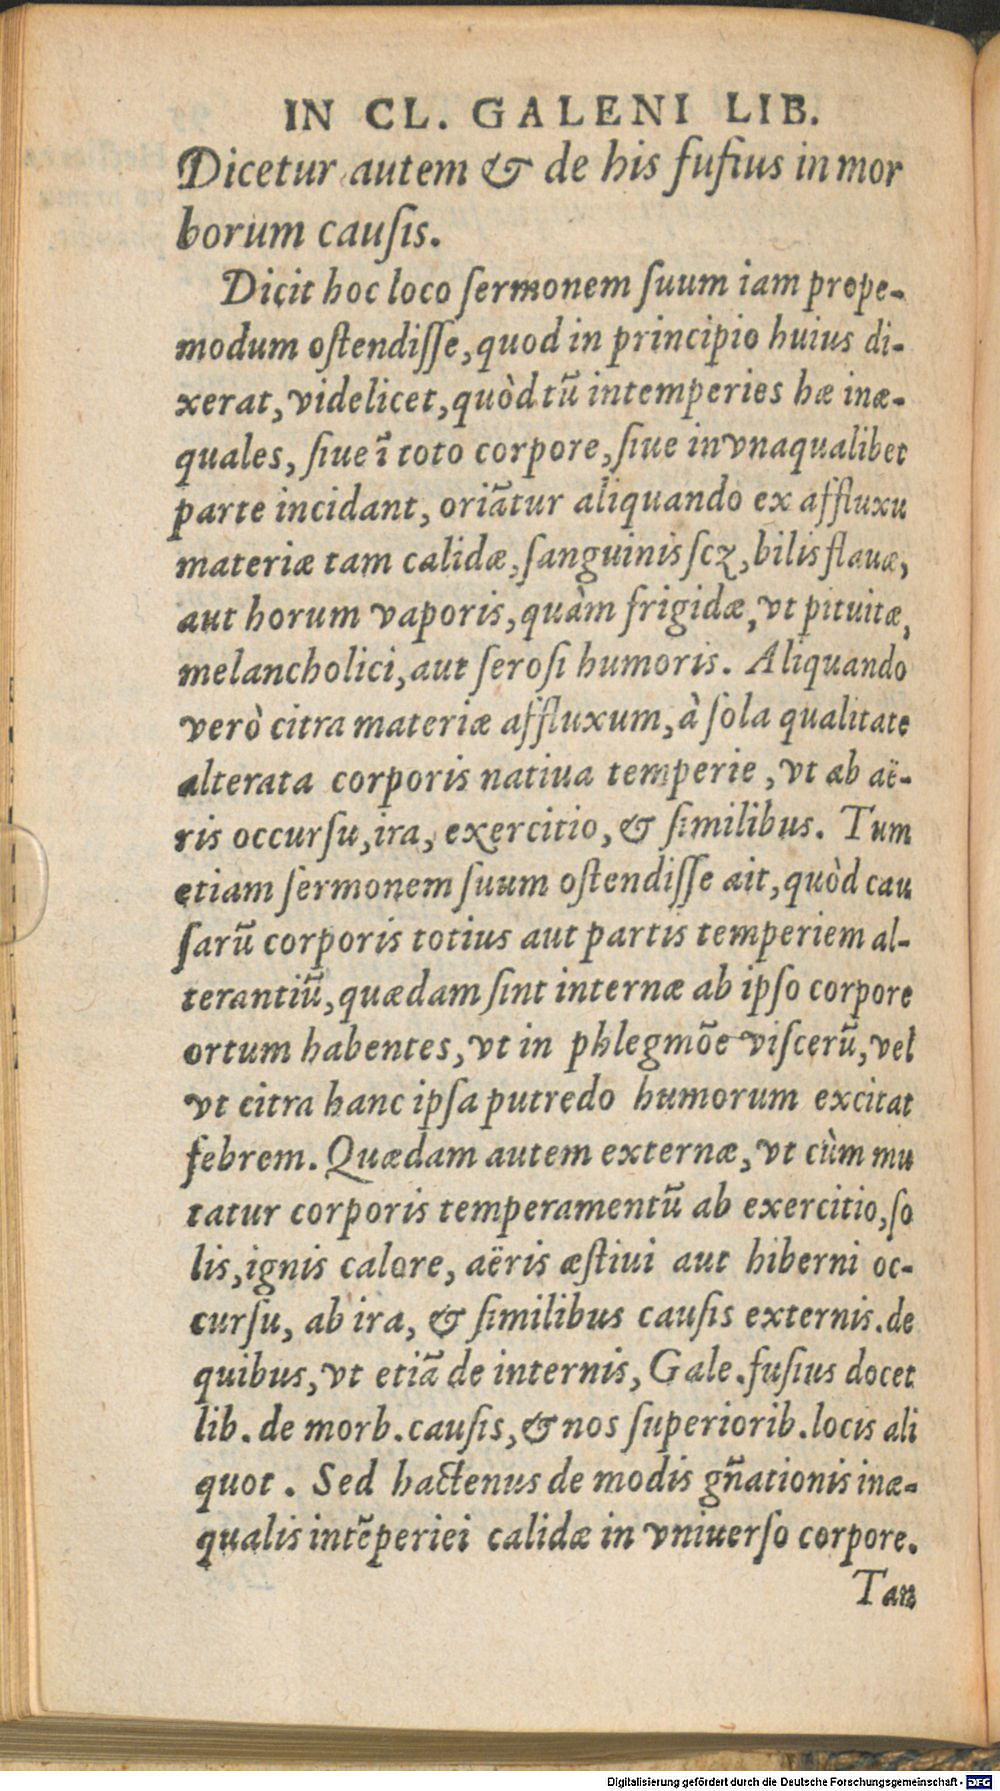 IN CL. GALENI LIB.
Dicetur autem & de his fuſius in mor
borum cauſis.
Dicit hoc loco ſermonem ſuum iam prope-
modum oſtendiſſe, quod in principio huius di-
xerat, videlicet, quòd tū intemperies hæ inæ-
quales, ſiue ī toto corpore, ſiue in vnaqualibet
parte incidant, oriātur aliquando ex affluxu
materiæ tam calidæ, ſanguinis ſcꝫ, bilis flauæ,
aut horum vaporis, quàm frigidæ, vt pituitæ,
melancholici, aut ſeroſi humoris. Aliquando
verò citra materiæ affluxum, à ſola qualitate
alterata corporis natiua temperie, vt ab aë-
ris occurſu, ira, exercitio, & ſimilibus. Tum
etiam ſermonem ſuum oſtendiſſe ait, quòd cau
ſarū corporis totius aut partis temperiem al-
terantiū, quædam ſint internæ ab ipſo corpore
ortum habentes, vt in phlegmōe viſcerū, vel
vt citra hanc ipſa putredo humorum excitat
febrem. Quædam autem externæ, vt cùm mu
tatur corporis temperamentū ab exercitio, ſo
lis, ignis calore, aëris æſtiui aut hiberni oc-
curſu, ab ira, & ſimilibus cauſis externis. de
quibus, vt etiā de internis, Gale. fuſius docet
lib. de morb. cauſis, & nos ſuperiorib. locis ali
quot. Sed hactenus de modis gn̄ationis inæ-
qualis intēperiei calidæ in vniuerſo corpore.
Tan
Digitalisierung gefördert durch die Deutsche Forschungsgemeinschaft - DFG